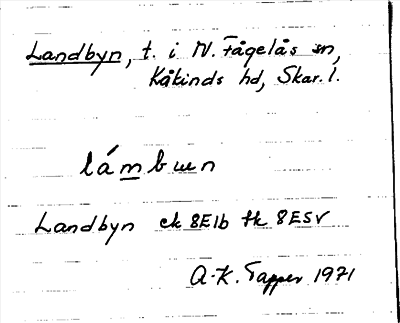 Landbyn, t. i N. Fågelås sn,
Kåkinds hd, Skar. l.
lámbɯn
Landbyn ek 8E1b tk 8ESV
A-K. Tapper 1971